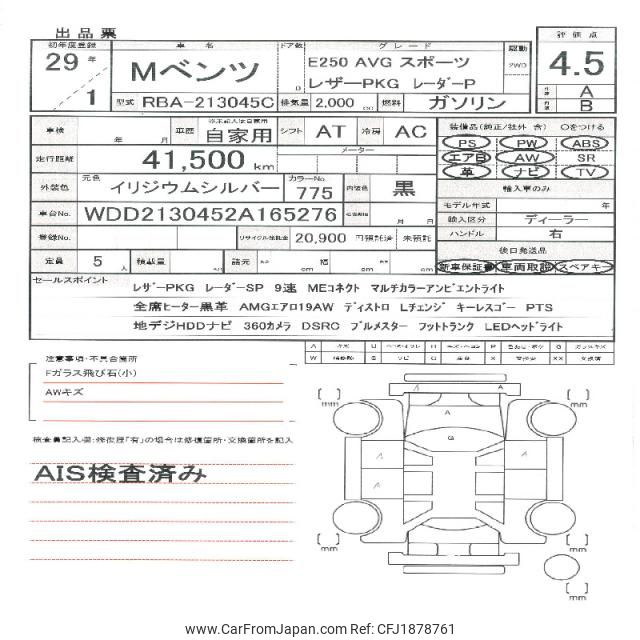 出品票
初年度登録 車名 ドア数 グレード 駆動 評価点
29年 Mベンツ E250 AVG スポーツ 2WD 4.5
1 D レザーPKG レーダーP A
型式 RBA-213045C 排気量 2,000 cc 燃料 ガソリン B
車検 年 月 車歴 自家用 シフト AT 冷房 AC 装備品(純正/社外 含) ○をつける
走行距離 41,500 km メーター PS PW ABS
エアB AW SR
革 ナビ TV
外装色 元色 イリジウムシルバー カラーNo. 775 内装色 黒 輸入車のみ
モデル年式 年
車台No. WDD2130452A165276 月 日 輸入区分 ディーラー
登録No. リサイクル預託金 20,900 円預託済 未預託 ハンドル 右
定員 5 人 積載量 諸元 cm 幅 cm cm 後日発送品
新車保証書 車両取説 スペアキー
セールスポイント レザーPKG レーダーSP 9速 MEコネクト マルチカラーアンビエントライト
全席ヒーター黒革 AMGエアロ19AW ディストロ Lチェンジ キーレスゴー PTS
地デジHDDナビ 360カメラ DSRC ブルメスター フットトランク LEDヘッドライト
注意事項・不具合箇所
Fガラス飛び石(小)
AWキズ
検査員記入欄:修復歴「有」の場合は修復箇所・交換箇所を記入
AIS検査済み
A A
A
G
A A
A
mm mm
mm mm
mm
© www.CarFromJapan.com Ref: CFJ1878761